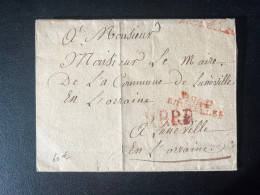 A Monsieur
Monsieur Le Maire
De La Commune de Lunéville
En Lorraine
P.P.P.P.
A Luneville
En Lorraine